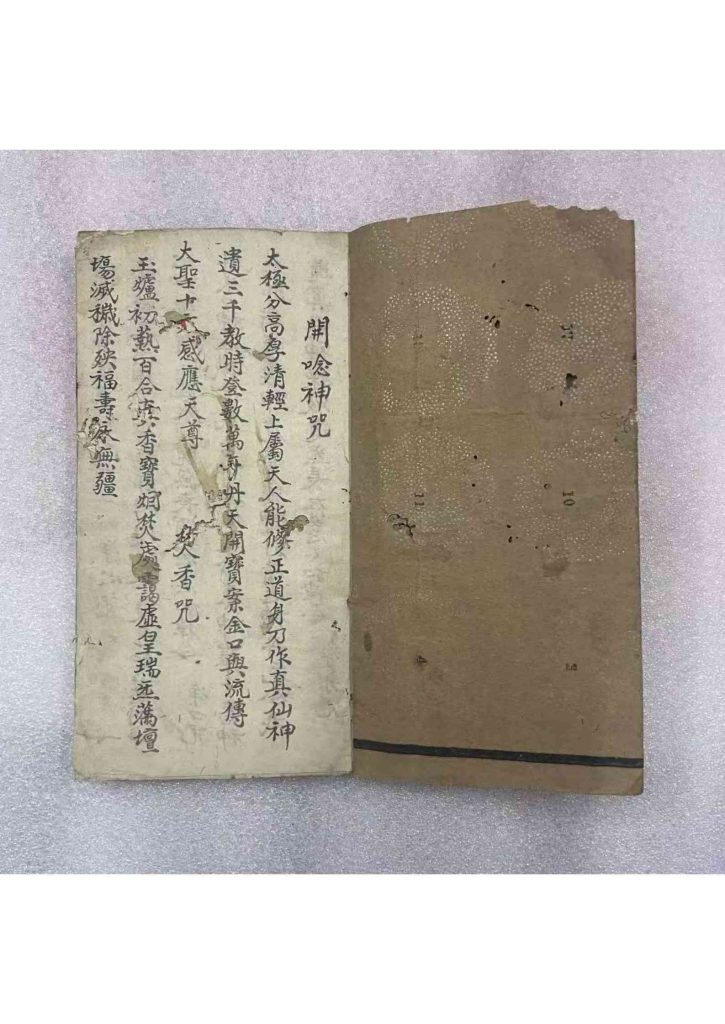 開唸神咒
太極分高厚清輕上屬天人能修正道身乃作真仙神
遺三千教時登數萬年丹天開寶案金口與流傳
大聖十感應天尊 焚香咒
玉爐初爇百合真香寶炯焚處靄虛皇瑞炁滿壇
場滅穢除殃福壽永無疆
10
11
4